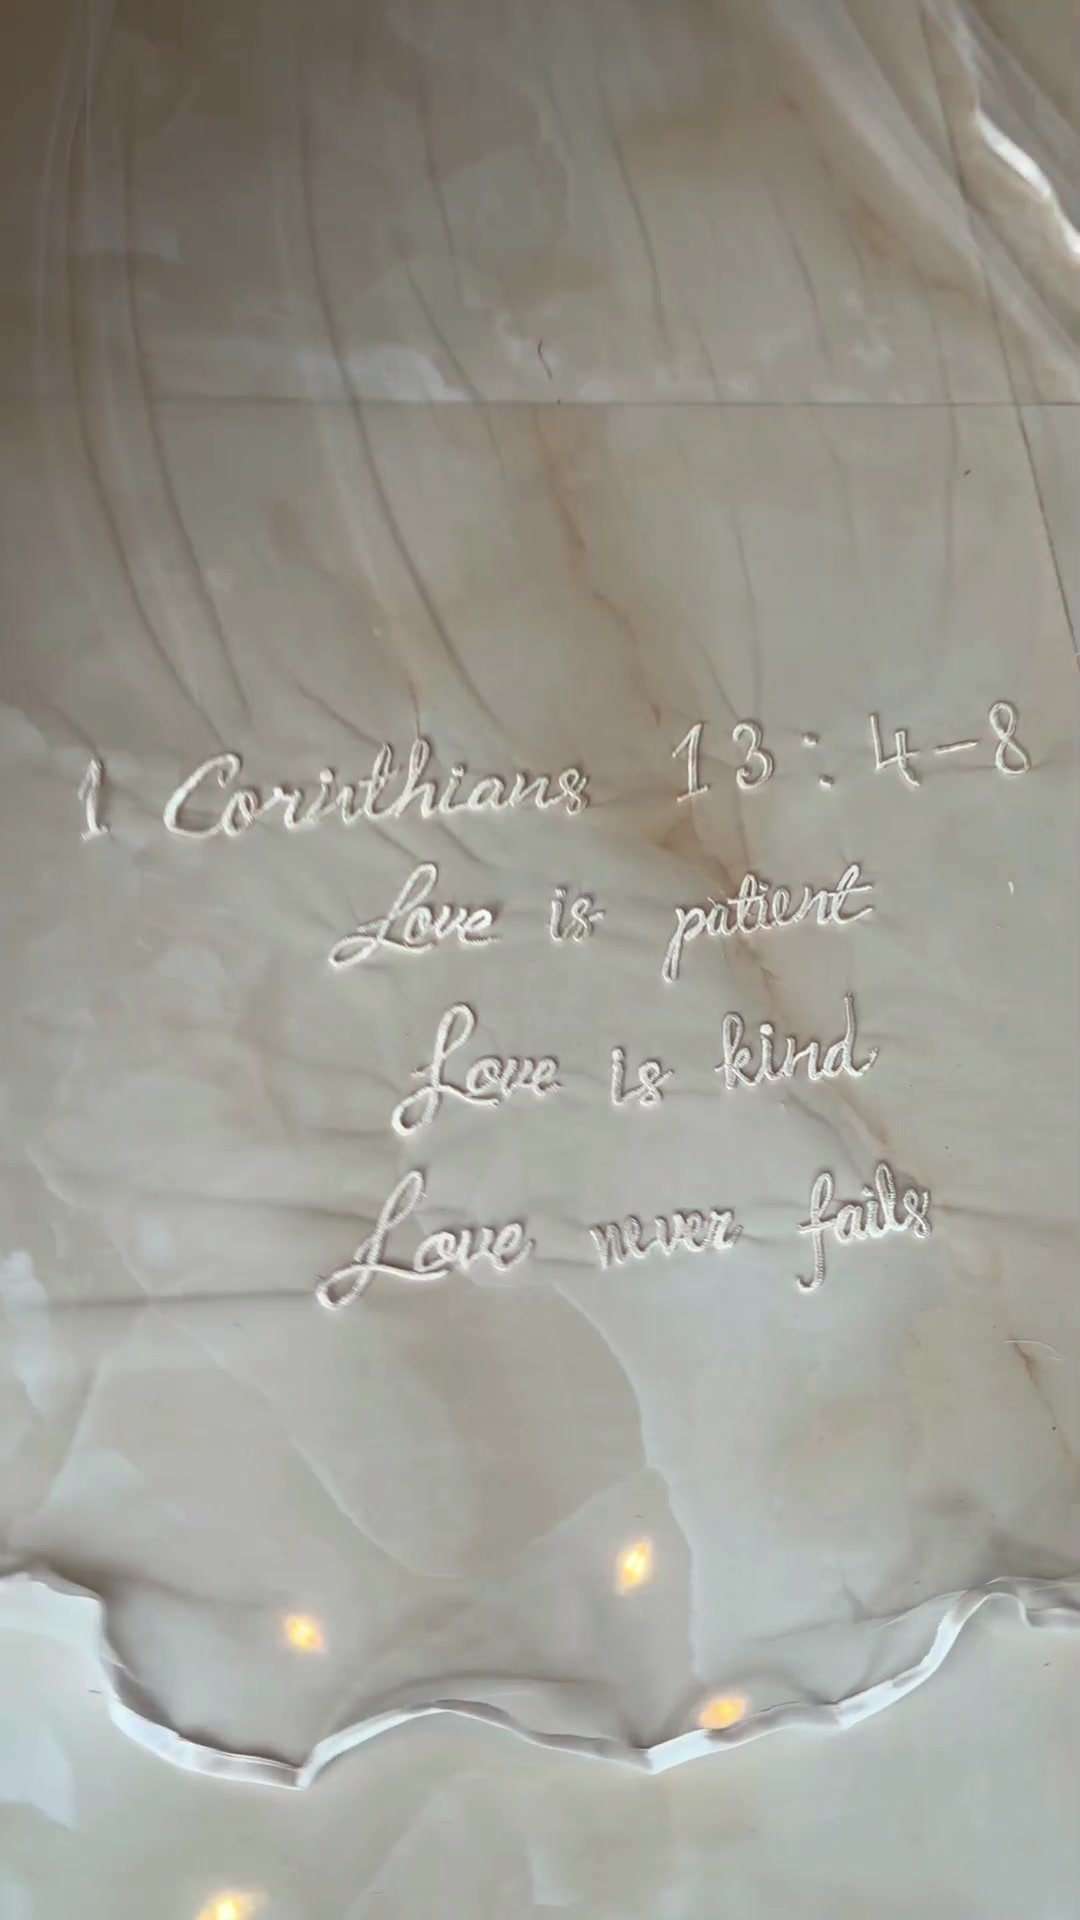 1 Corinthians 13:4-8
Love is patient
Love is kind
Love never fails